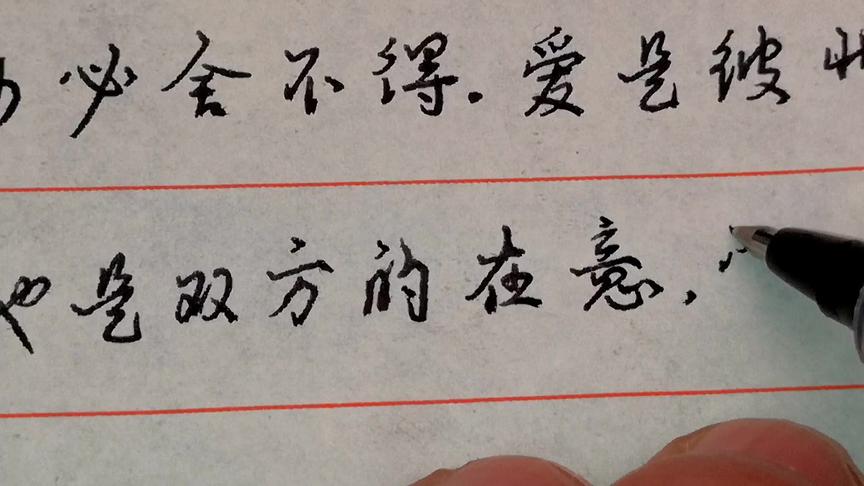 必舍不得.爱是彼
也是双方的在意,